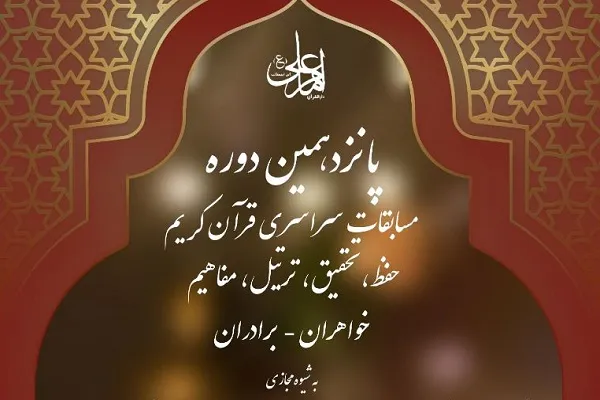 امام علی (ع)
پانزدهمین دوره
مسابقات سراسری قرآن کریم
حفظ، تحقیق، ترتیل، مفاهیم
خواهران - برادران
به شیوه مجازی